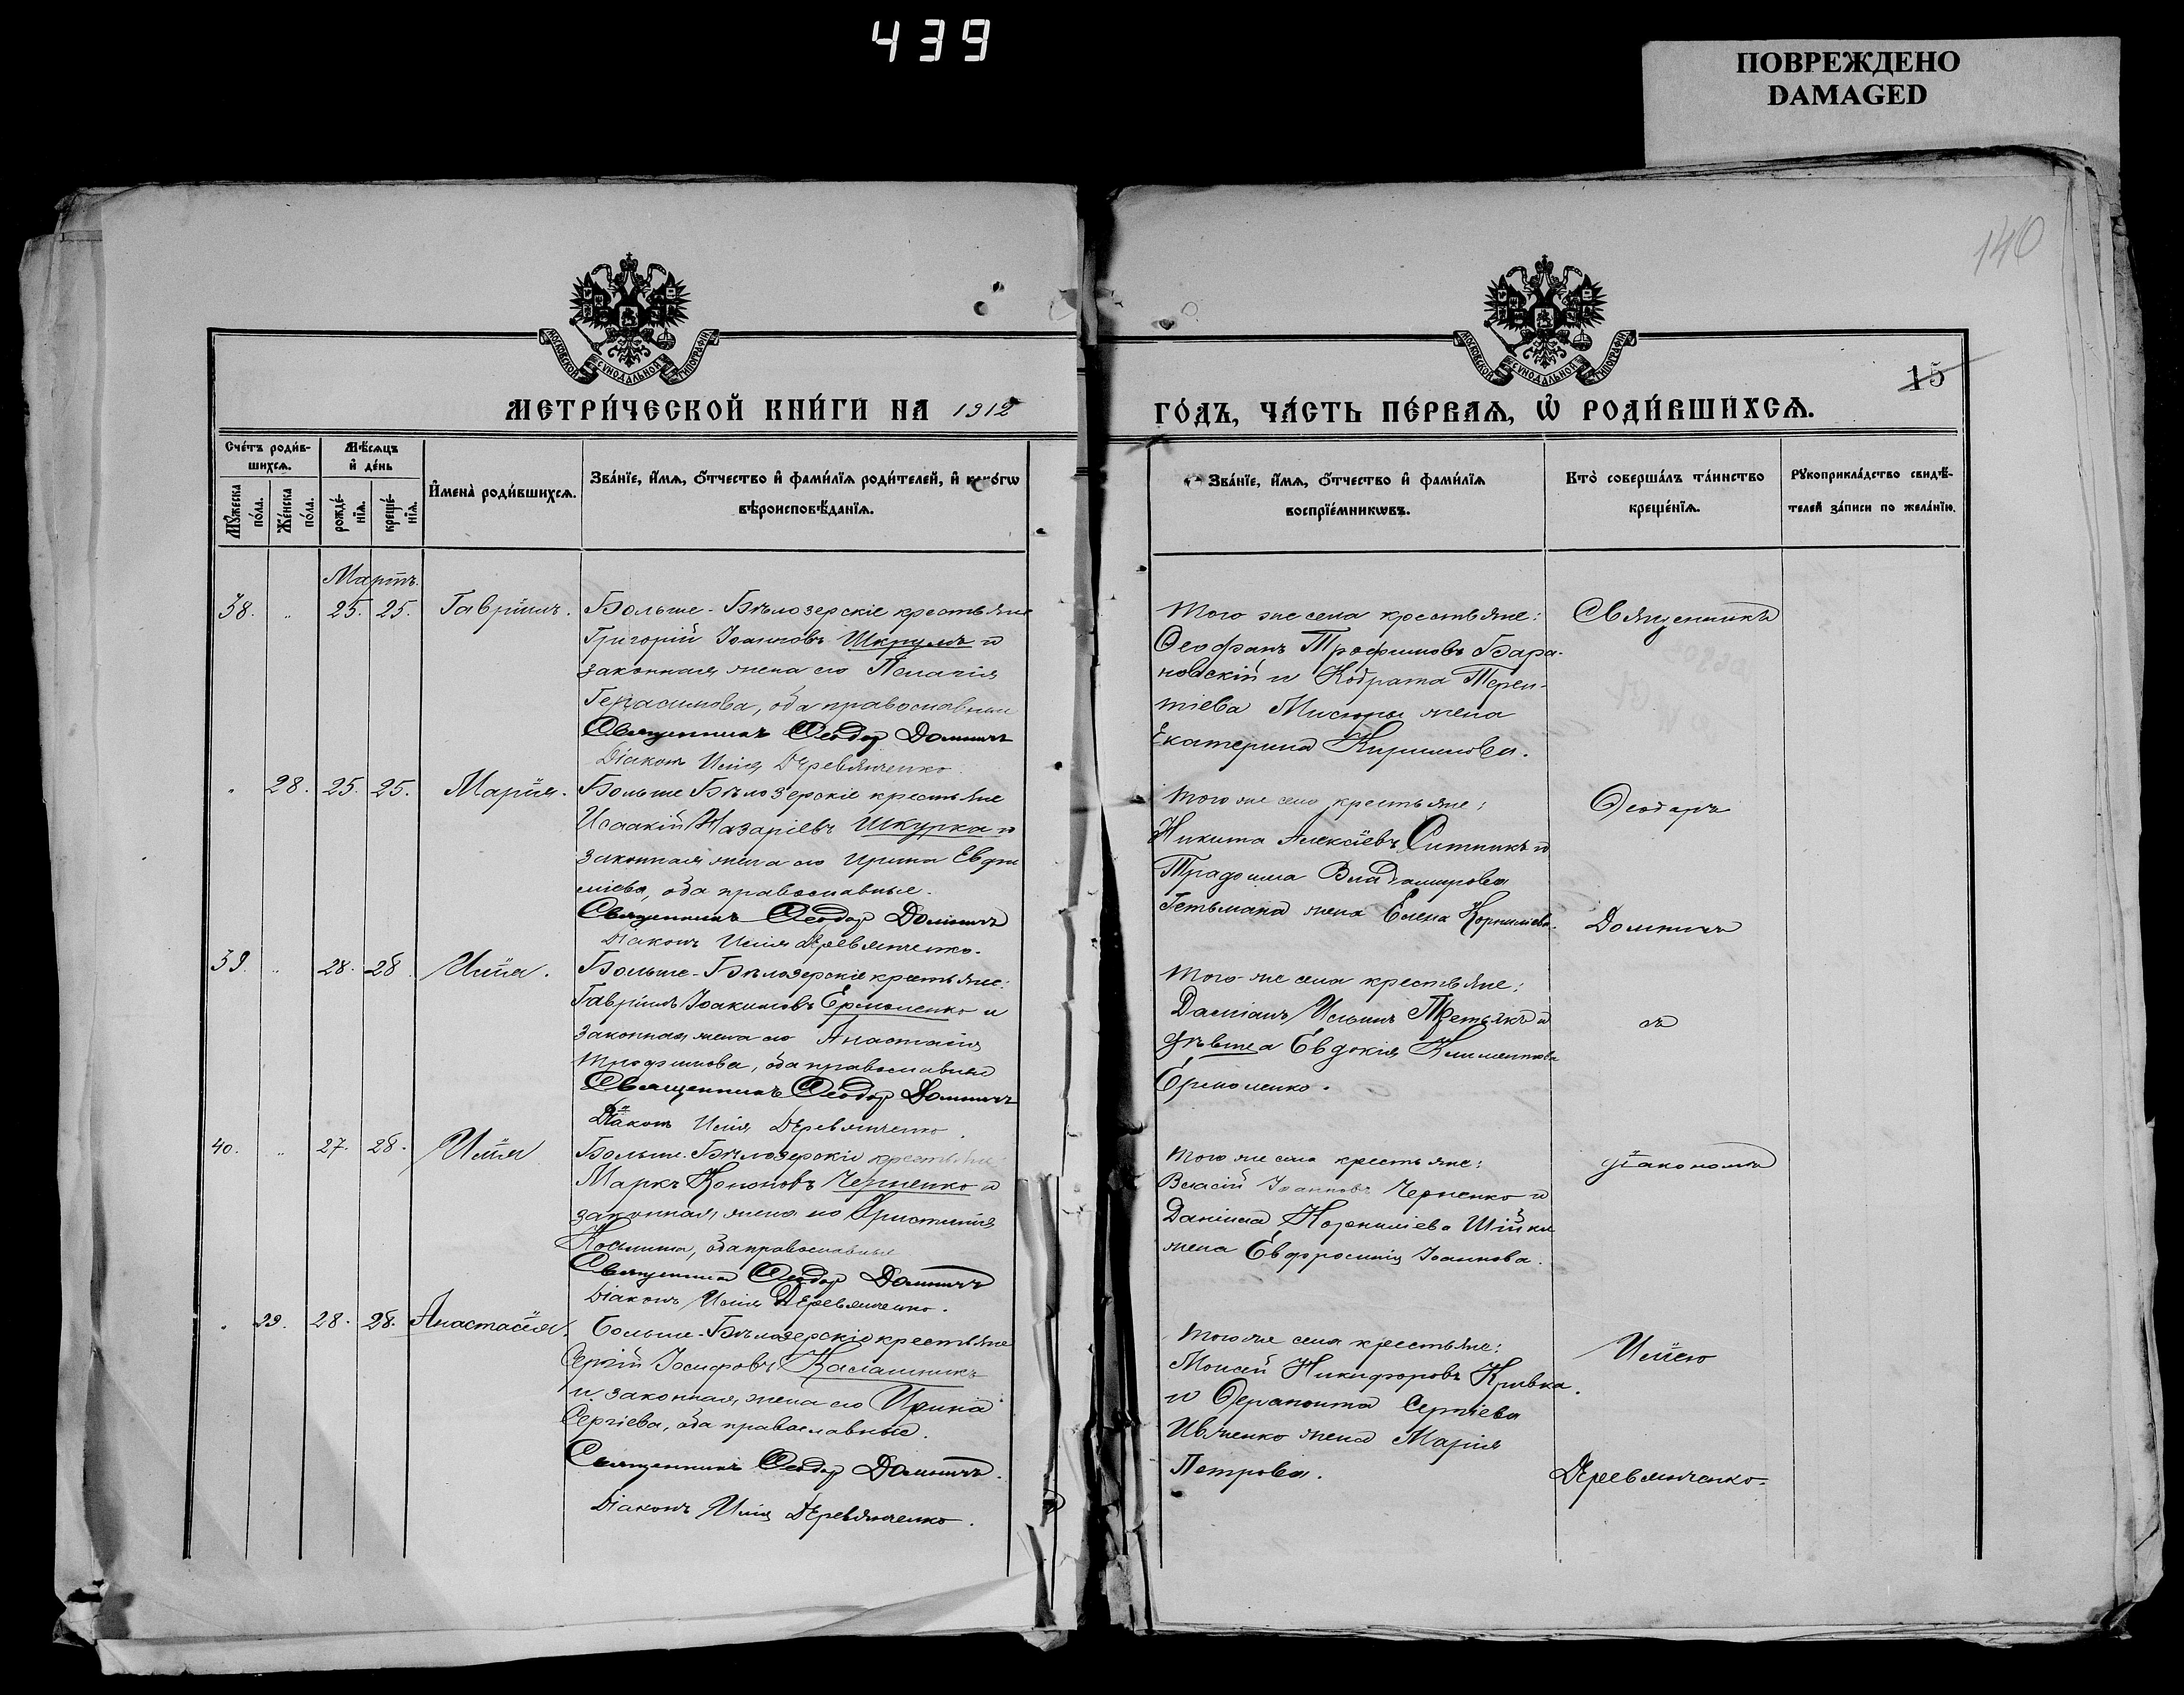 439
ПОВРЕЖДЕНО
DAMAGED
140
МОСКОВСКОЙ СУНОДАЛЬНОЙ ТИПОГРАФІИ
МОСКОВСКОЙ СУНОДАЛЬНОЙ ТИПОГРАФІИ
15
МЕТРИ́ЧЕСКОЙ КНИ́ГИ НА 1912
ГО́ДЪ, ЧА́СТЬ ПЕ́РВАѦ, Ѡ҆ РОДИ́ВШИХСѦ.
Сче́тъ роди́в-
шихсѧ.
Мꙋ́жеска
по́ла.
Же́нска
по́ла.
Мѣ́сѧцъ
и҆ де́нь
рожде́-
нїѧ.
креще́-
нїѧ.
И҆мена̀ роди́вшихсѧ.
Зва́нїе, и҆́мѧ, ѻ҆́тчество и҆ фами́лїѧ роди́телей, и҆ како́гѡ
вѣроисповѣ́данїѧ.
Зва́нїе, и҆́мѧ, ѻ҆́тчество и҆ фами́лїѧ
воспрїе́мникѡвъ.
Кто̀ соверша́лъ та́инство
креще́нїѧ.
Рꙋкоприкла́дство свидѣ́-
телей за́писи по жела́нїю.
Мартъ.
38. " 25. 25. Гавріилъ.
Больше-Бѣлозерскіе крестьяне
Григорій Іоанновъ Шкрумъ и
законная жена его Пелагія
Герасимова, оба православные
Священникъ Ѳеодор Доминичъ
Діаконъ Илія Деревянченко.
Того же села крестьяне:
Ѳеофанъ Трофимовъ Бара-
новскій и Кодрата Терен-
тіева Мисюры жена
Екатерина Кириллова.
Священникъ
" 28. 25. 25. Марія.
Больше Бѣлозерскіе крестьяне
Исаакій Назаріевъ Шкурка и
законная жена его Ирина Евфи
міева, оба православные.
Священникъ Ѳеодор Доминичъ
Діаконъ Илія Деревянченко.
Того же села крестьяне:
Никита Алексіевъ Ситникъ и
Владимирова
Гетьмана жена Елена Корниліева.
Ѳеодоръ
Доминичъ
39. " 28. 28. Илія.
Больше-Бѣлозерскіе крестьяне:
Гавріилъ Іоакимовъ Ермоленко и
законная жена его Анастасія
Трофимова, оба православные
Священникъ Ѳеодор Доминичъ
Діаконъ Илія Деревянченко.
Того-же села крестьяне:
Даміанъ Ильинъ Третьякъ и
дѣвица Евдокія Климентова
Ермоленко.
съ
40. " 27. 28. Илія
Больше-Бѣлозерскіе крестьяне
Маркъ Кононовъ Черненко и
законная жена его Христина
Козмина, оба православные
Священникъ Ѳеодор Доминичъ
Діаконъ Илія Деревянченко.
Того же села крестьяне:
Власій Іоанновъ Черненко и
Даніила Корниліева Шійки
жена Евфросинія Іоаннова.
діакономъ
" 29. 28. 28. Анастасія.
Больше-Бѣлозерскіе крестьяне
Сергій Іосифовъ Калашникъ
и законная жена его Ирина
Сергіева, оба православные.
Священникъ Ѳеодор Доминичъ.
Діаконъ Илія Деревянченко.
Того же села крестьяне:
Моисей Никифоровъ Кривка.
и Ѳерапонта Сергіева
Ивченко жена Марія
Петрова.
Иліею
Деревянченко.